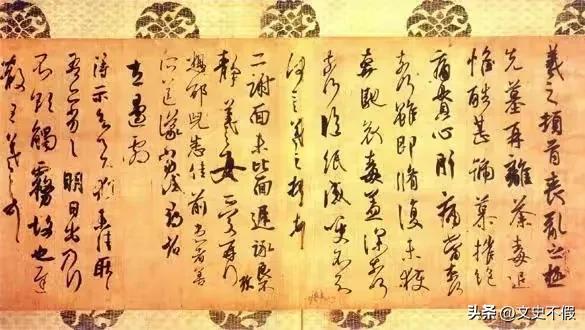 羲之頓首喪亂之極
先墓再離荼毒追
惟酷甚號慕摧絕
痛貫心肝痛當奈何
奈何雖即脩復未獲
奔馳哀毒益深奈何
奈何臨紙感哽不知
何言羲之頓首頓首
二謝面未比面遲詠良
不靜羲之女愛再拜
想邰兒悉佳前患者善
所送議當試尋省
左邊劇
得示知足下猶未佳耿耿
吾亦劣劣明日出乃行
不欲觸霧故也遲
散王羲之頓首
头条 @文史不假